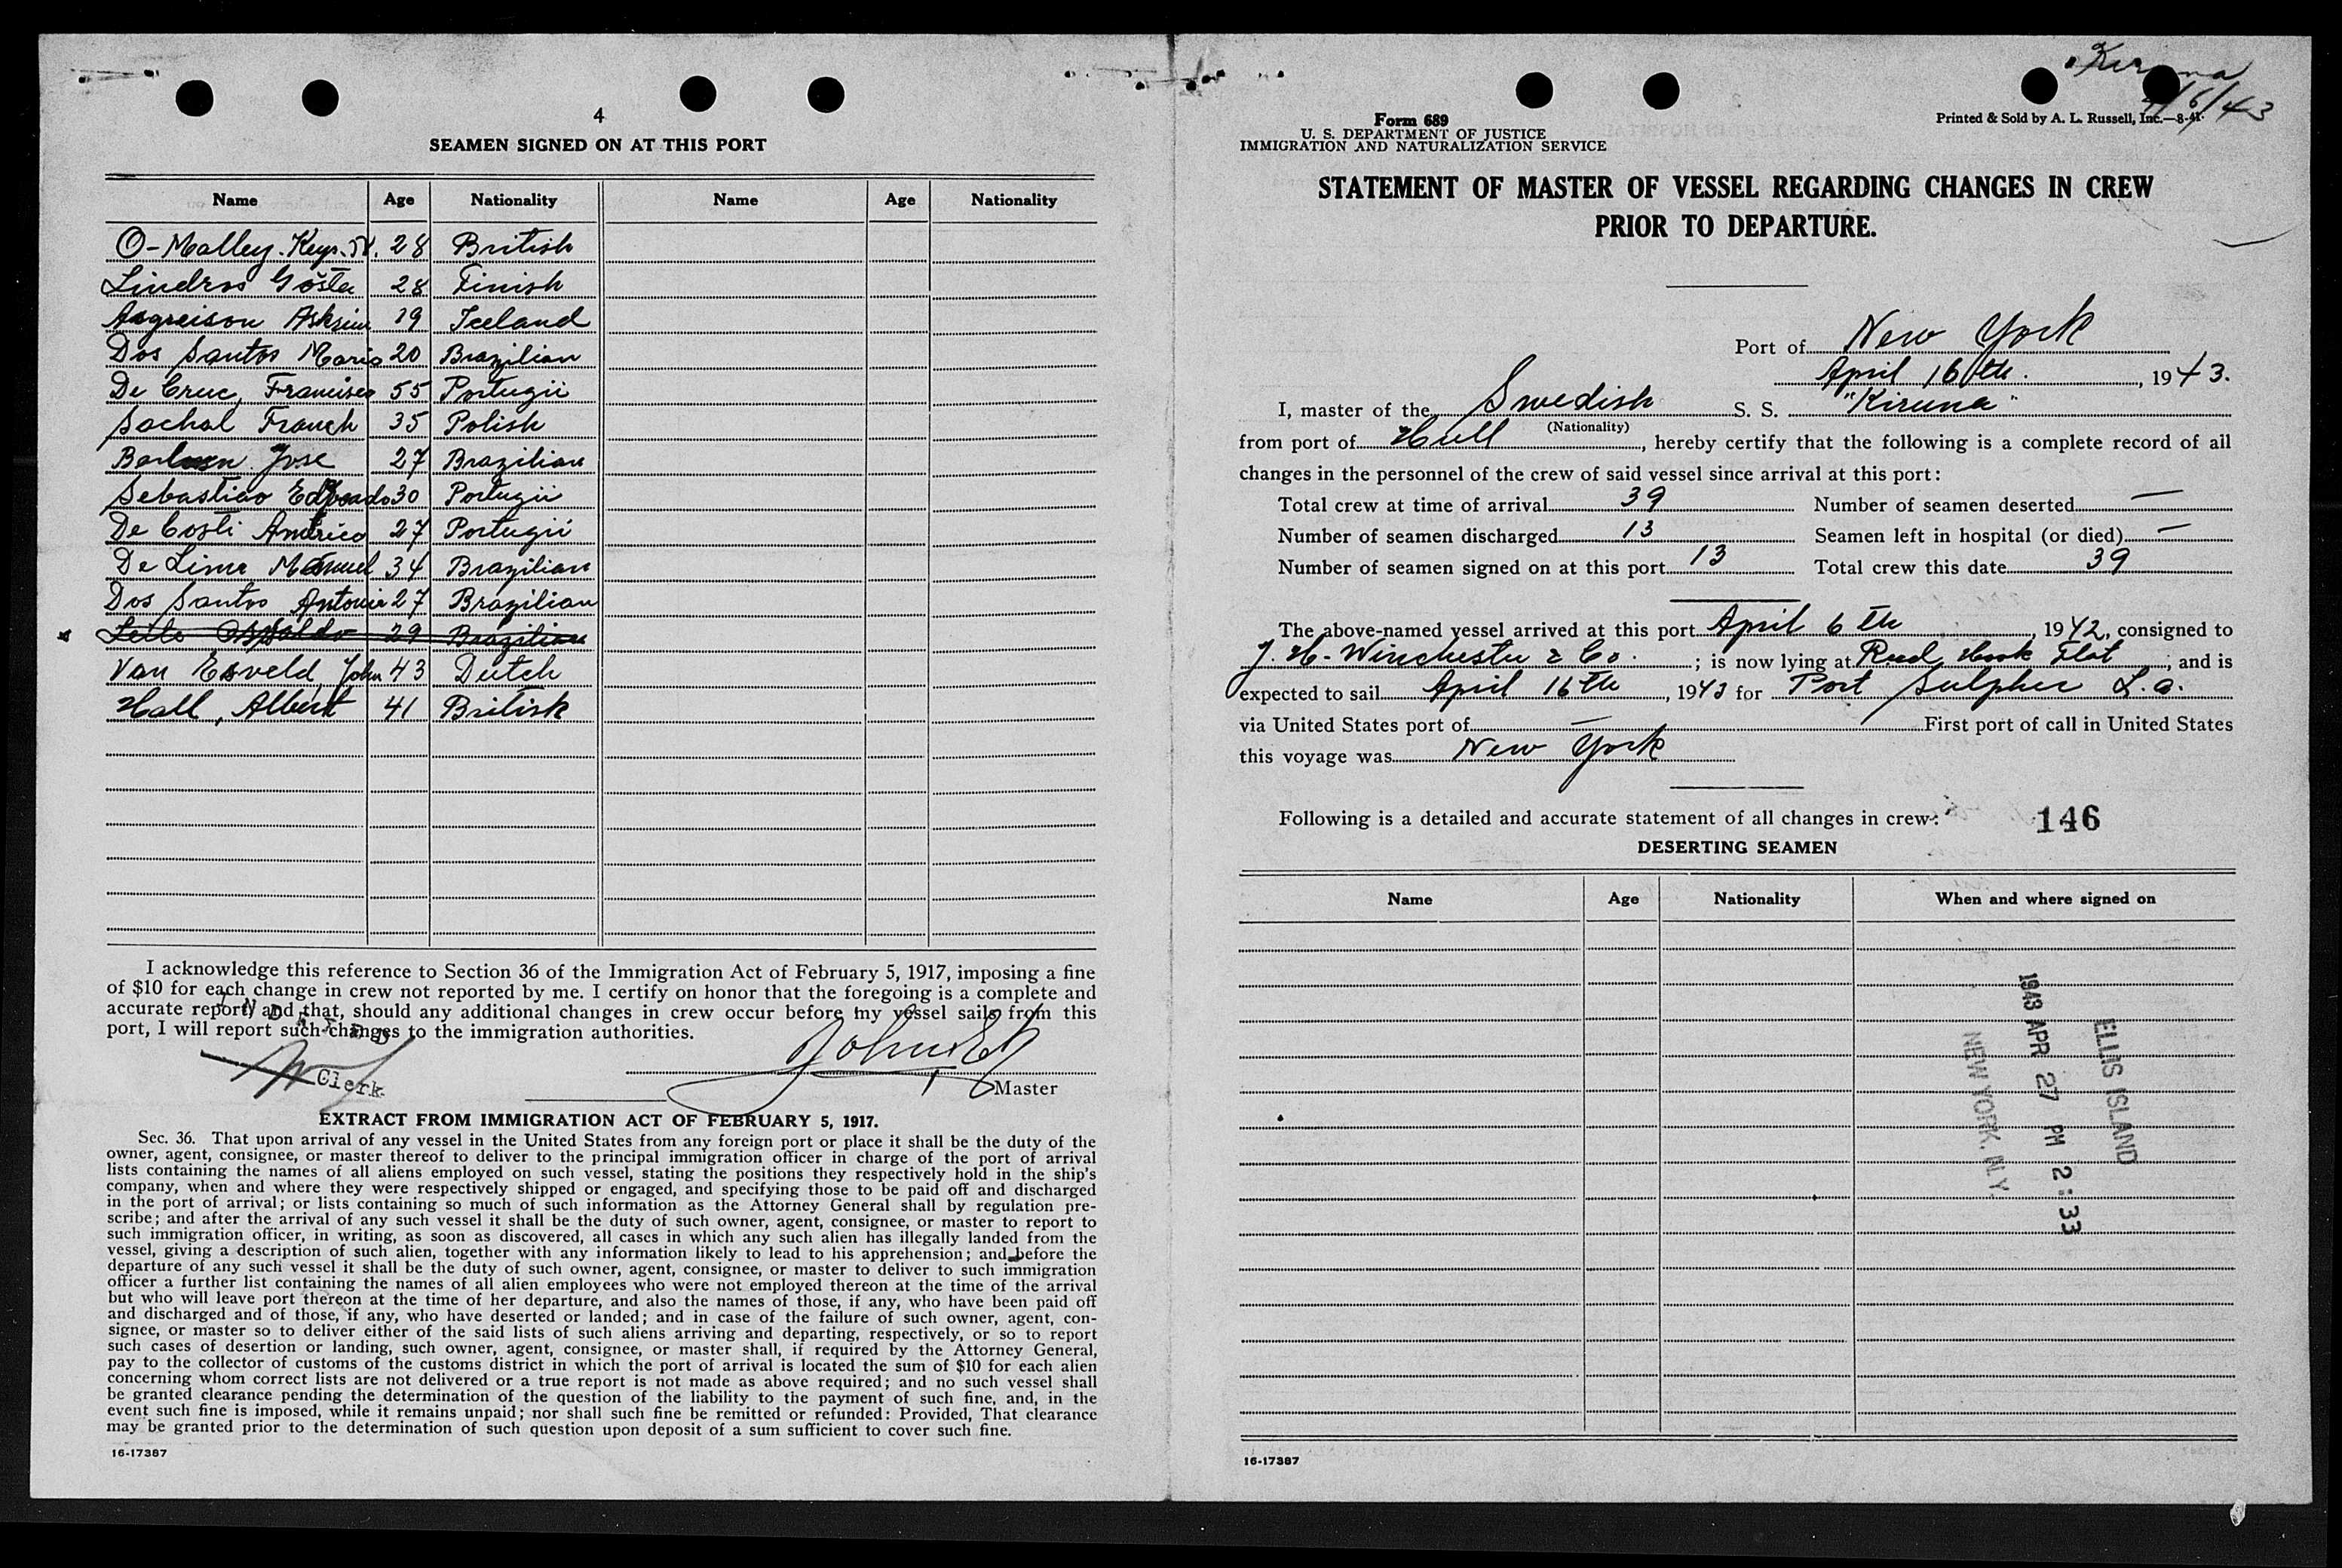 4
SEAMEN SIGNED ON AT THIS PORT
Name Age Nationality Name Age Nationality
O-Malley. Keys. 28 British
Lindros Gösta 28 Finish
Asgreison 19 Iceland
Dos Santos Mario 20 Brazilian
De Cruc, Francisco 55 Portugii
Sachal Franch 35 Polish
Jose 27 Brazilian
Sebastiao 30 Portugii
De Costi Americo 27 Portugii
De Lima Manuel 34 Brazilian
Dos Santos Antonio 27 Brazilian
Leito Osvaldo 29 Brazilian
Van Esveld, John 43 Dutch
Hall, Albert 41 British
I acknowledge this reference to Section 36 of the Immigration Act of February 5, 1917, imposing a fine
of $10 for each change in crew not reported by me. I certify on honor that the foregoing is a complete and
accurate report, and that, should any additional changes in crew occur before my vessel sails from this
port, I will report such changes to the immigration authorities.
INDEXED
Clerk
Master
EXTRACT FROM IMMIGRATION ACT OF FEBRUARY 5, 1917.
Sec. 36. That upon arrival of any vessel in the United States from any foreign port or place it shall be the duty of the
owner, agent, consignee, or master thereof to deliver to the principal immigration officer in charge of the port of arrival
lists containing the names of all aliens employed on such vessel, stating the positions they respectively hold in the ship's
company, when and where they were respectively shipped or engaged, and specifying those to be paid off and discharged
in the port of arrival; or lists containing so much of such information as the Attorney General shall by regulation pre-
scribe; and after the arrival of any such vessel it shall be the duty of such owner, agent, consignee, or master to report to
such immigration officer, in writing, as soon as discovered, all cases in which any such alien has illegally landed from the
vessel, giving a description of such alien, together with any information likely to lead to his apprehension; and before the
departure of any such vessel it shall be the duty of such owner, agent, consignee, or master to deliver to such immigration
officer a further list containing the names of all alien employees who were not employed thereon at the time of the arrival
but who will leave port thereon at the time of her departure, and also the names of those, if any, who have been paid off
and discharged and of those, if any, who have deserted or landed; and in case of the failure of such owner, agent, con-
signee, or master so to deliver either of the said lists of such aliens arriving and departing, respectively, or so to report
such cases of desertion or landing, such owner, agent, consignee, or master shall, if required by the Attorney General,
pay to the collector of customs of the customs district in which the port of arrival is located the sum of $10 for each alien
concerning whom correct lists are not delivered or a true report is not made as above required; and no such vessel shall
be granted clearance pending the determination of the question of the liability to the payment of such fine, and, in the
event such fine is imposed, while it remains unpaid; nor shall such fine be remitted or refunded: Provided, That clearance
may be granted prior to the determination of such question upon deposit of a sum sufficient to cover such fine.
16-17387
Kiruna
4/16/43
Form 689
U. S. DEPARTMENT OF JUSTICE
IMMIGRATION AND NATURALIZATION SERVICE
Printed & Sold by A. L. Russell, Inc.—8-41
STATEMENT OF MASTER OF VESSEL REGARDING CHANGES IN CREW
PRIOR TO DEPARTURE.
Port of New York
April 16th. , 1943.
I, master of the Swedish S. S. "Kiruna"
(Nationality)
from port of Hull , hereby certify that the following is a complete record of all
changes in the personnel of the crew of said vessel since arrival at this port:
Total crew at time of arrival 39 Number of seamen deserted —
Number of seamen discharged 13 Seamen left in hospital (or died) —
Number of seamen signed on at this port 13 Total crew this date 39
The above-named vessel arrived at this port April 6th , 1942, consigned to
J. H. Winchester & Co. ; is now lying at Red Hook Flat , and is
expected to sail April 16th , 1943 for Port Sulpher L.a.
via United States port of — First port of call in United States
this voyage was New York
Following is a detailed and accurate statement of all changes in crew: 146
DESERTING SEAMEN
Name Age Nationality When and where signed on
ELLIS ISLAND
1943 APR 27 PM 2:33
NEW YORK, N.Y.
16-17387